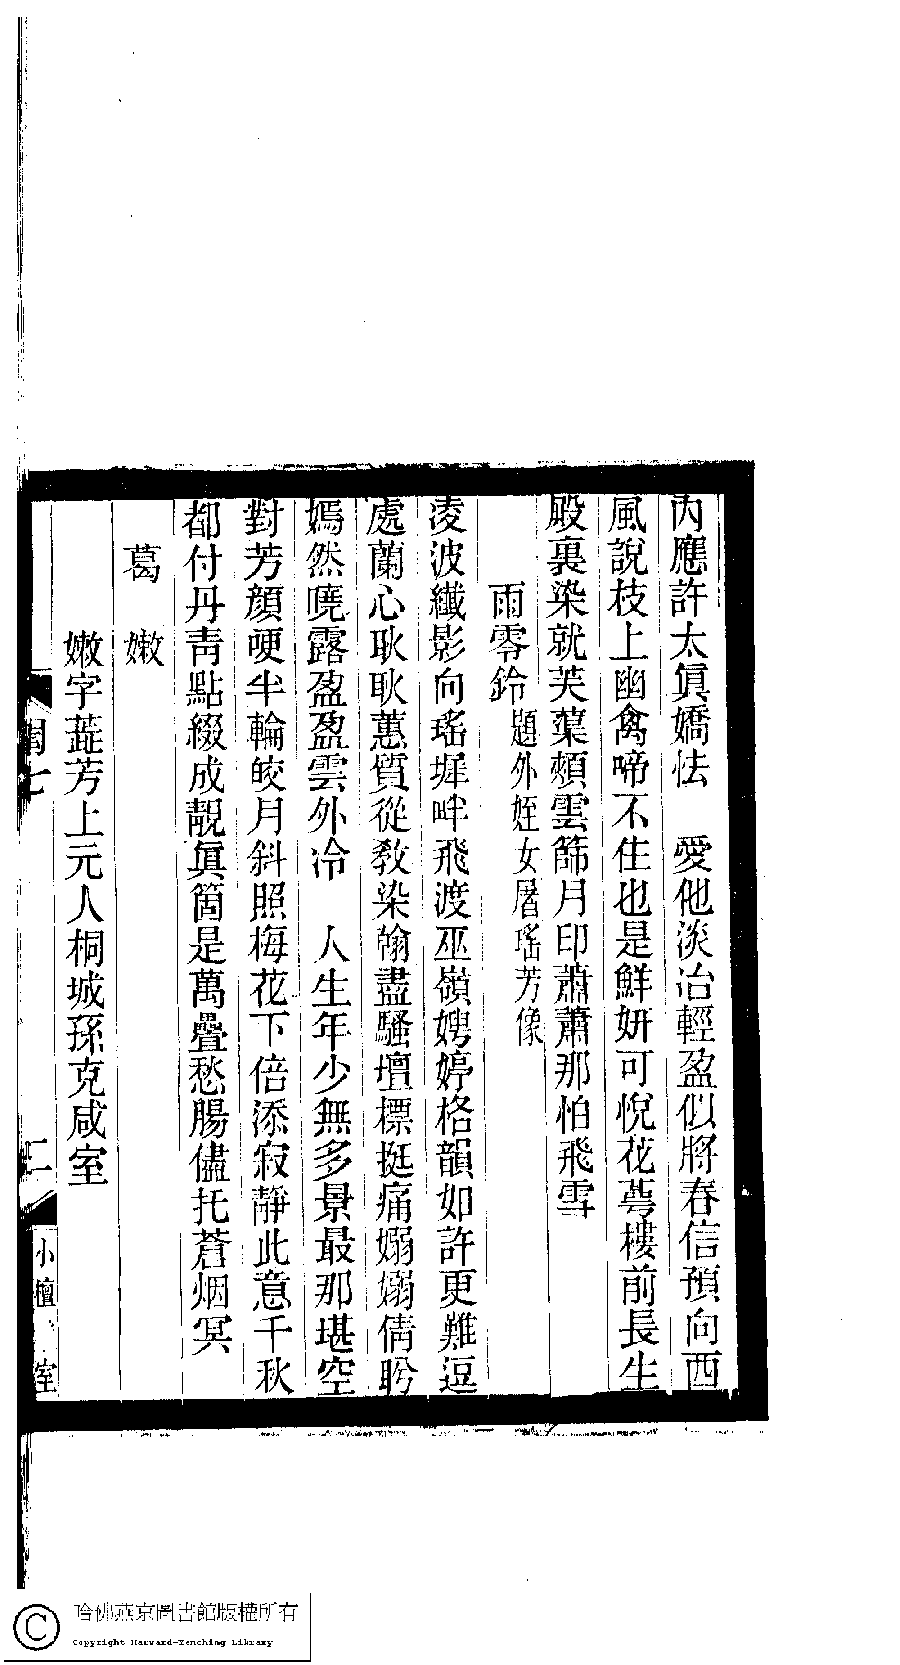 內應許太眞嬌怯　愛他淡冶輕盈似將春信預向西
風說枝上幽禽啼不住也是鮮妍可悅花萼樓前長生
殿裏染就芙蕖頰雲篩月印蕭蕭那怕飛雪
雨零鈴題外姪女屠瑤芳像
淩波纖影向瑤墀畔飛渡巫嶺娉婷格韻如許更難逗
處蘭心耿耿蕙質從敎染翰盡騷壇標挺痛嫋嫋倩盻
嫣然曉露盈盈雲外冷　人生年少無多景最那堪空
對芳顔哽半輪皎月斜照梅花下倍添寂靜此意千秋
都付丹靑點綴成靚眞箇是萬疊愁腸儘托蒼烟冥
葛嫩
嫩字蘂芳上元人桐城孫克咸室
閏七
二
小檀
室
哈佛燕京圖書館版權所有
Copyright Harvard-Yenching Library